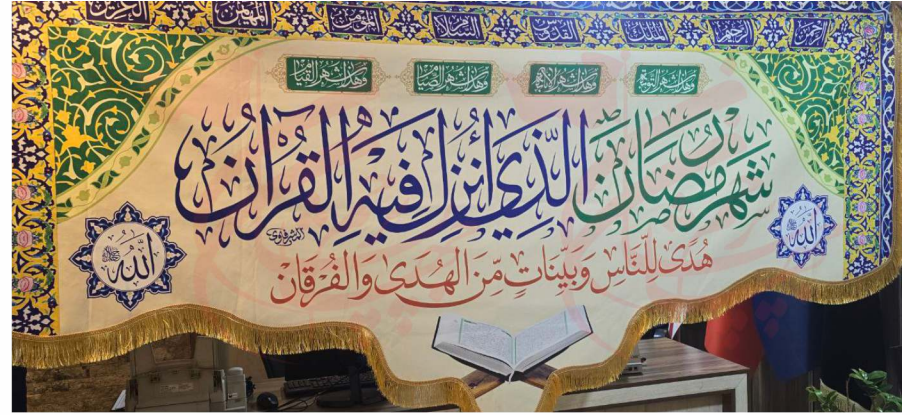 الرحمن الرحیم الملک القدوس السلام المؤمن المهیمن العزیز
وَهذا شَهرُ التَّوبَةِ وَهذا شَهرُ الإنابَةِ وَهذا شَهرُ الصِّیامِ وَهذا شَهرُ القِیامِ
شَهرُ رَمَضَانَ الَّذِی أُنزِلَ فِیهِ القُرآنُ
هُدًی لِلنَّاسِ وَبَیِّنَاتٍ مِّنَ الهُدَی وَالفُرقَانِ
اللّٰهُ
اللّٰهُ